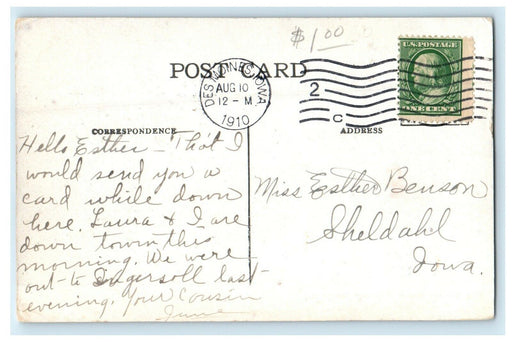 $1.00
POST CARD
DES MOINES, IOWA
AUG 10
12 - M
1910
2
C
U.S. POSTAGE
ONE CENT
CORRESPONDENCE
Hello Esther - That I
would send you a
card while down
here. Laura & I are
down town this
morning. We were
out to Ingersoll last
evening. Your Cousin
June
ADDRESS
Miss Esther Benson
Sheldahl
Iowa.